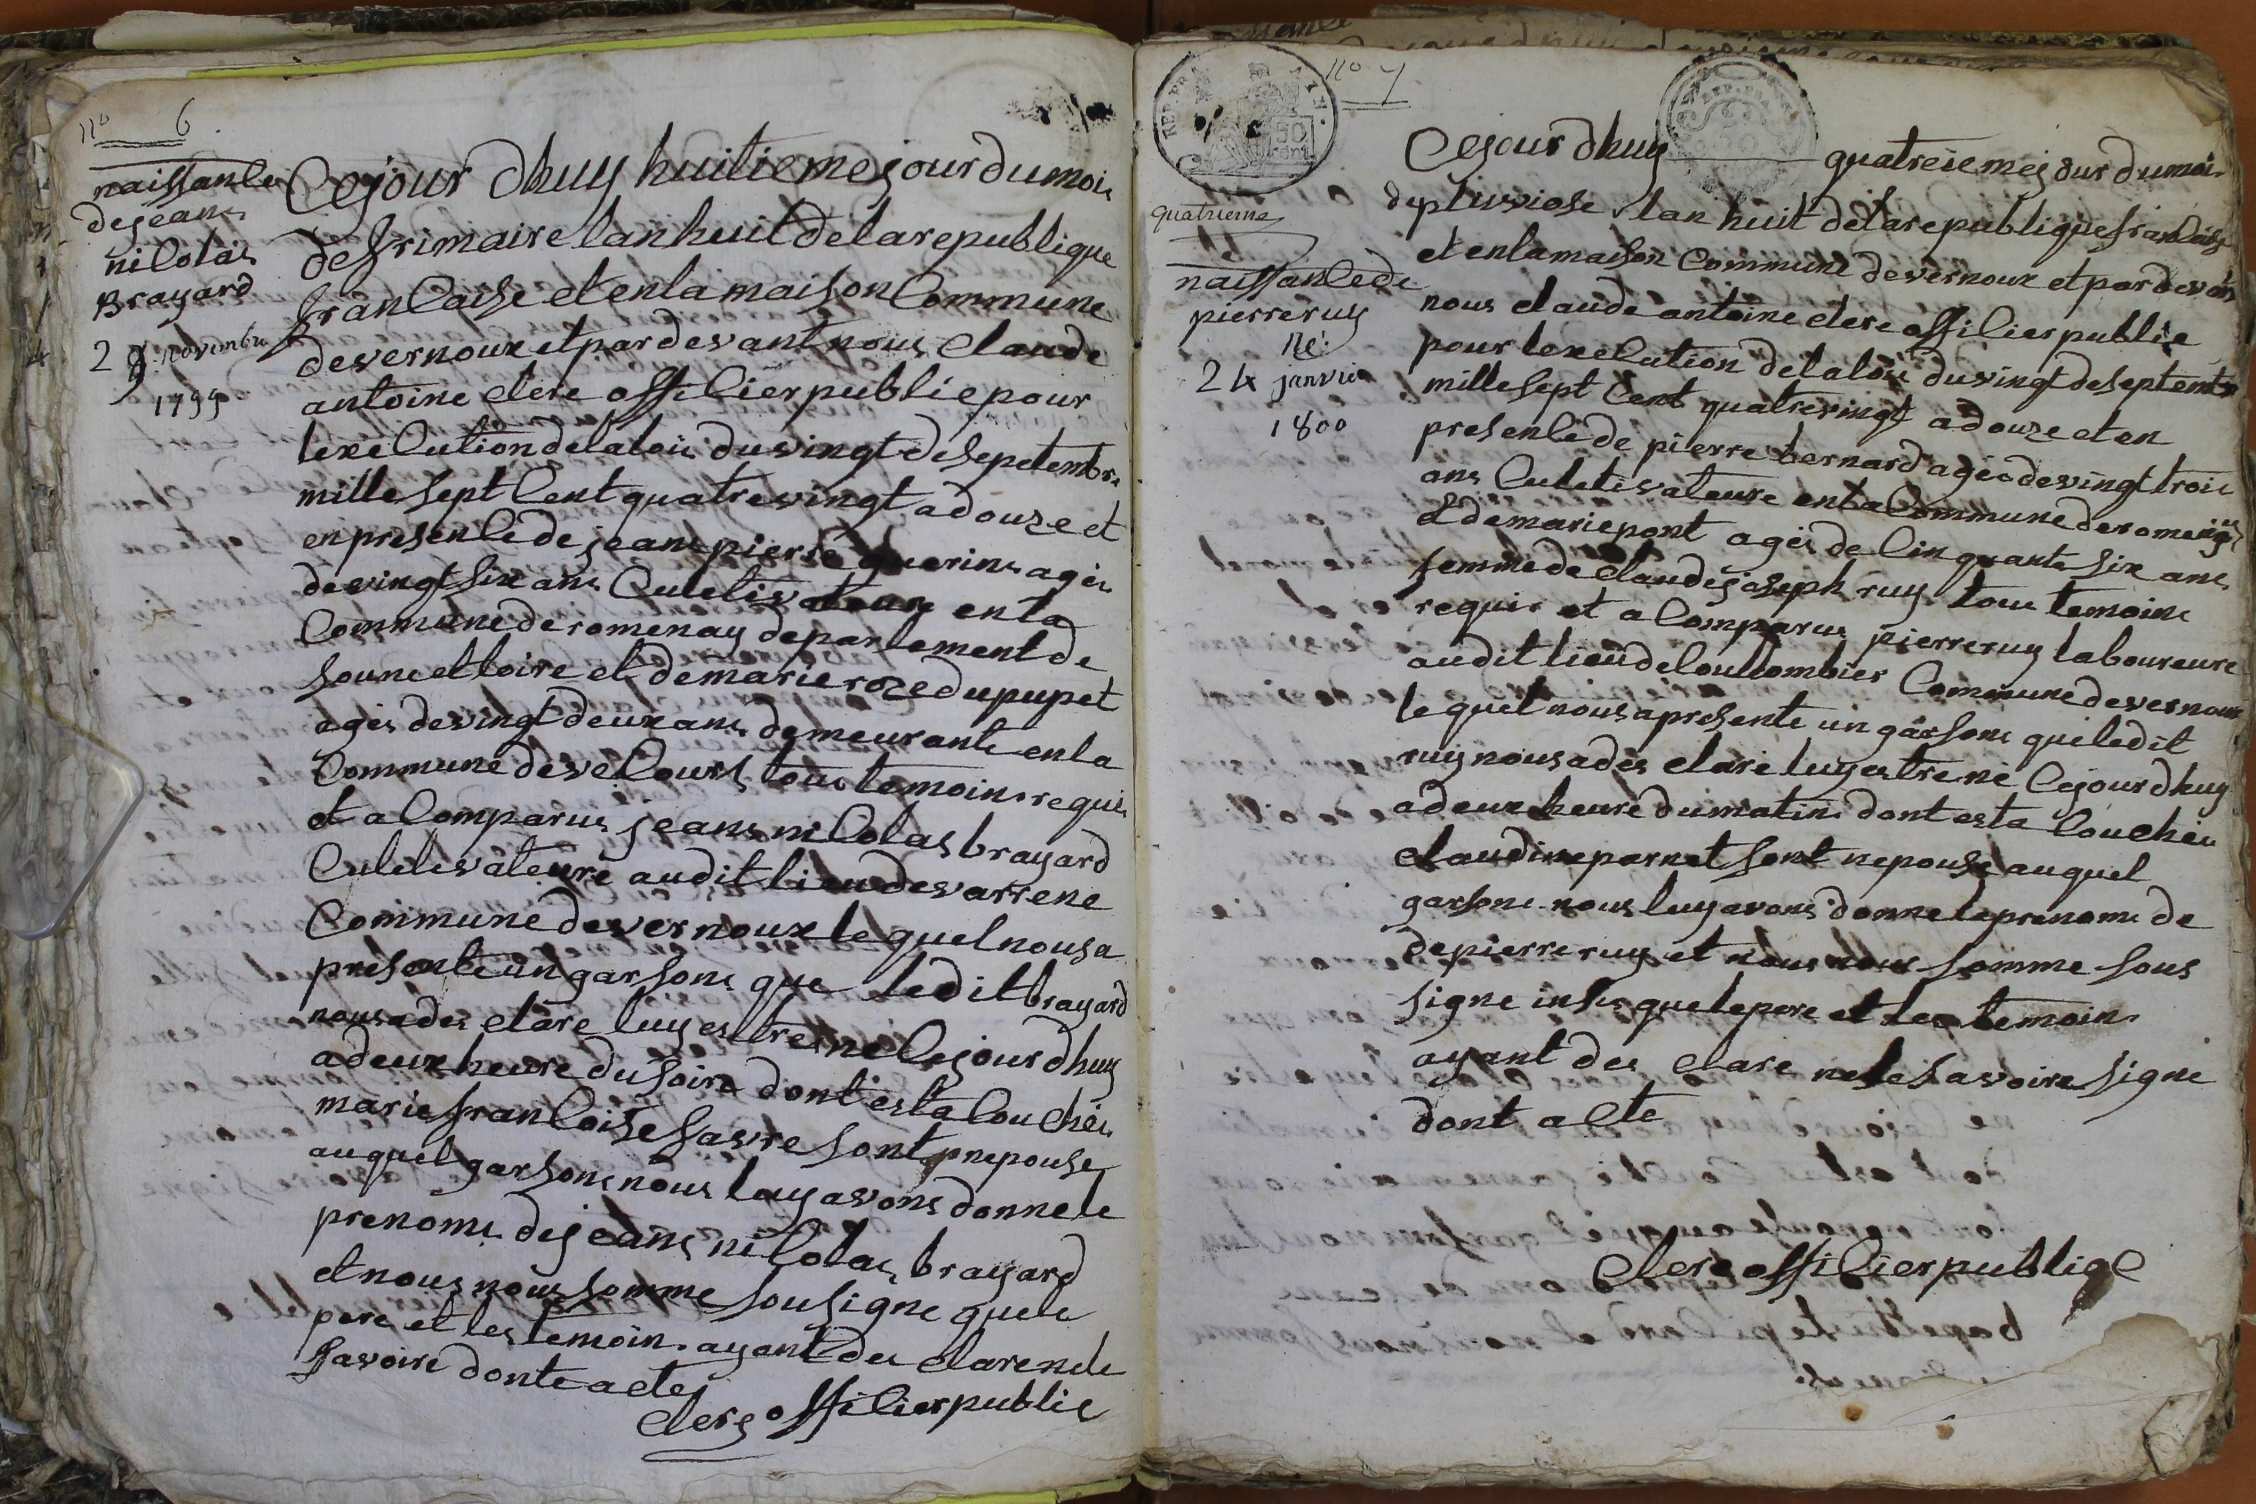 no 6
naissance
dejeans
nicolas
Brayard
29 novembre
1799
Cejour dhuy huitieme jour du mois
de frimaire lan huit de la republique
francaise et en la maison Commune
de vernoux et par devant nous Claude
antoine clere officier public pour
lexecution de la loi du vingt de sepetembre
mille sept Cent quatre vingt a douze et
en presence de jeans pierre guerins agés
de vingt six ans Culetivateure en la
Commune de romenay departement de
soune et loire et de marie roze dupupet
agés de vingt deux ans demeurante en la
Commune de veCours tous temoins requis
et a Comparus jeans nicolas brayard
Culetivateure audit lieu de varrene
Commune de vernoux le quel nous a
presente un garsons que ledit brayard
nous a des clare luy estre ne Cejour dhuy
a deux heure du soire dont esta Couchés
marie francoise favre sont nepouse
auquel garsons nous luy avons donne le
prenoms de jeans nicolas brayard
et nous nous somme sousigne que le
pere et les temoin ayant des clare ne le
savoire donte actes
clere officier public
no 7
REP. FRA
50
cent
REP. FRA
quatrieme
naissance de
pierre ruy
né
24 janvier
1800
Cejour dhuy quatreieme jour du mois
de pluviose lan huit de la republique francaise
et en la maison Commune de vernoux et par devans
nous claude antoine clere officier public
pour lexecution de la loi du vingt de septembre
mille sept Cent quatre vingt a douze et en
presence de pierre bernard agés de vingt trois
ans Culetivateure en la Commune de romenay
& de marie pont agés de Cinquante six ans
femme de claude joseph ruy tous temoins
requis et a Comparus pierre ruy laboureure
audit lieu de Coullombier Commune de vernoux
le quel nous a presente un garsons que ledit
ruy nous a des clare luy estre né Cejour dhuy
a deux heure du matin dont esta Couchés
claudine parnet sont nepouse auquel
garsons nous luy avons donne le prenoms de
de pierre ruy et nous nous somme sous
signe insis que le pere et les temoin
ayant des clare ne le savoire signe
dont acte
clere officier publiqe